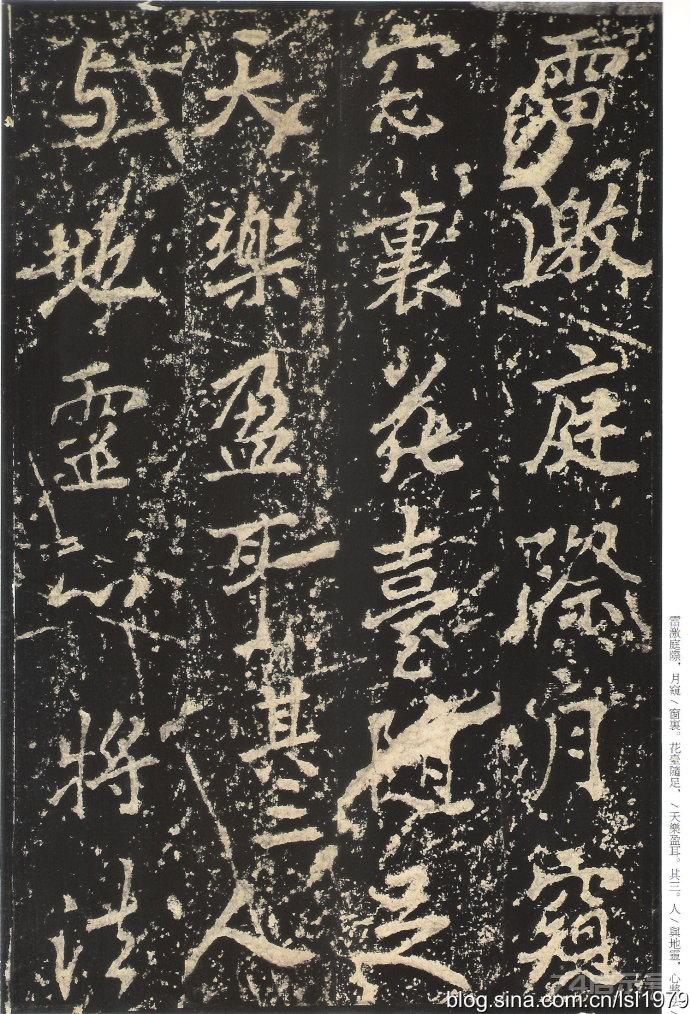 雷激庭際月窺
窓裏花臺随足
天樂盈耳其三人
与地靈心將法
雷激庭際，月窺/窗裏。花臺隨足，/天樂盈耳。其三。人/與地靈，心將法
blog.sina.com.cn/lsl1979